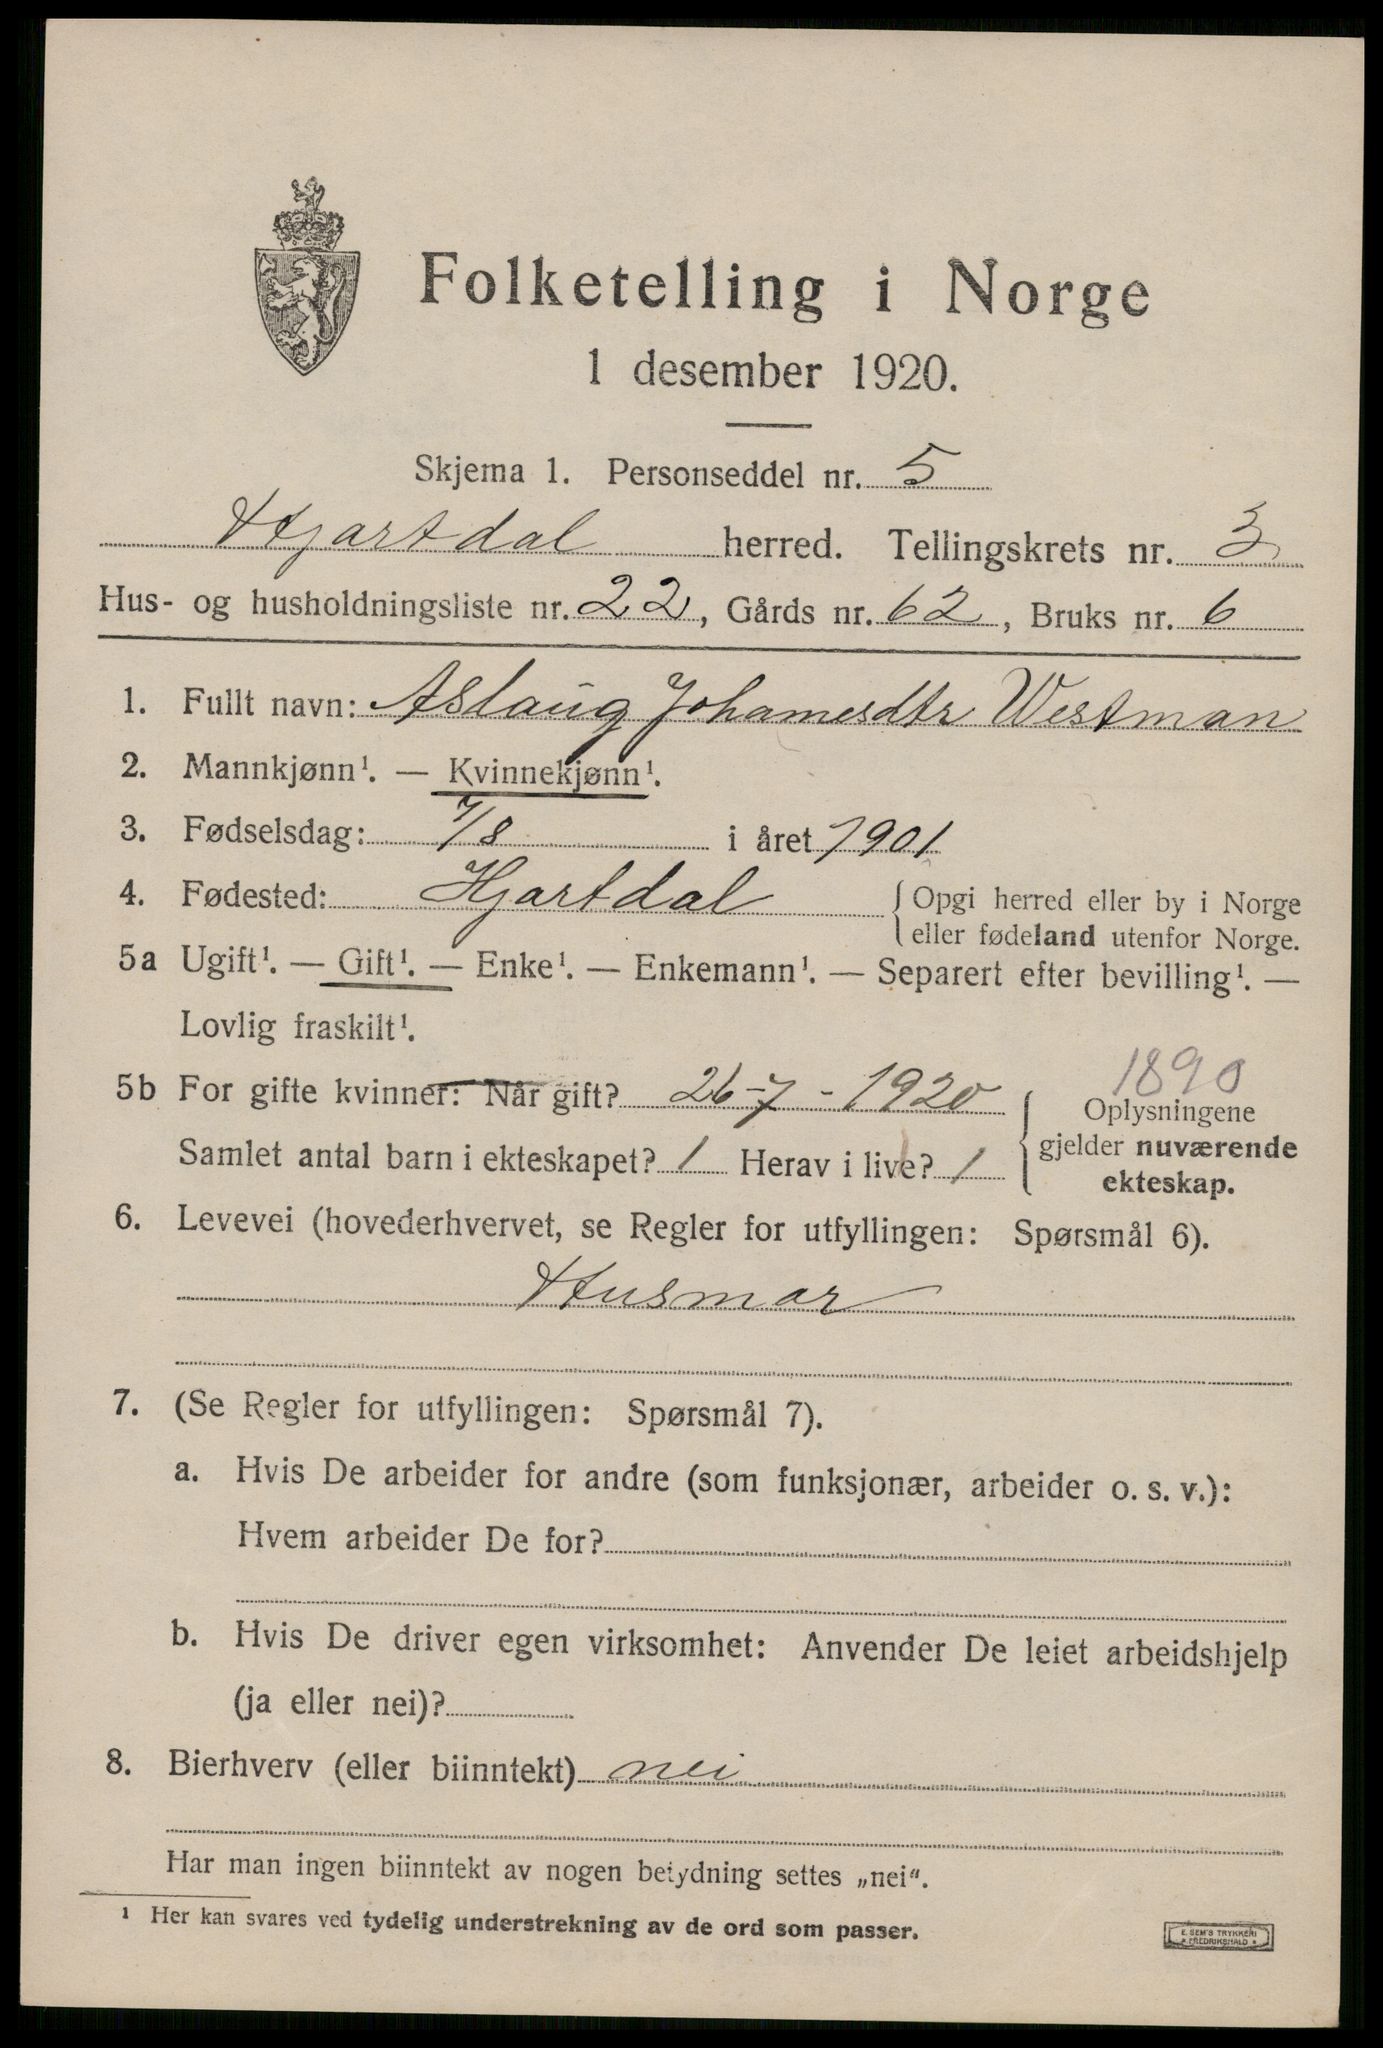 Folketelling i Norge
1 desember 1920.
Skjema 1. Personseddel nr. 5
Hjartdal herred. Tellingskrets nr. 3
Hus- og husholdningsliste nr. 22, Gårds nr. 62, Bruks nr. 6
1. Fullt navn: Aslaug Johannesdtr Westman
2. Mannkjønn¹. — Kvinnekjønn¹.
3. Fødselsdag: 7/8 i året 1901
4. Fødested: Hjartdal { Opgi herred eller by i Norge
eller fødeland utenfor Norge.
5a Ugift¹. — Gift¹. — Enke¹. — Enkemann¹. — Separert efter bevilling¹. —
Lovlig fraskilt¹.
1890
5b For gifte kvinner: Når gift? 26-7-1920 { Oplysningene
gjelder nuværende
ekteskap.
Samlet antal barn i ekteskapet? 1 Herav i live? 1
6. Levevei (hovederhvervet, se Regler for utfyllingen: Spørsmål 6).
Husmor
7. (Se Regler for utfyllingen: Spørsmål 7).
a. Hvis De arbeider for andre (som funksjonær, arbeider o. s. v.):
Hvem arbeider De for?
b. Hvis De driver egen virksomhet: Anvender De leiet arbeidshjelp
(ja eller nei)?
8. Bierhverv (eller biinntekt) nei
Har man ingen biinntekt av nogen betydning settes „nei“.
¹ Her kan svares ved tydelig understrekning av de ord som passer.
E. SEM'S TRYKKERI
FREDRIKSHALD